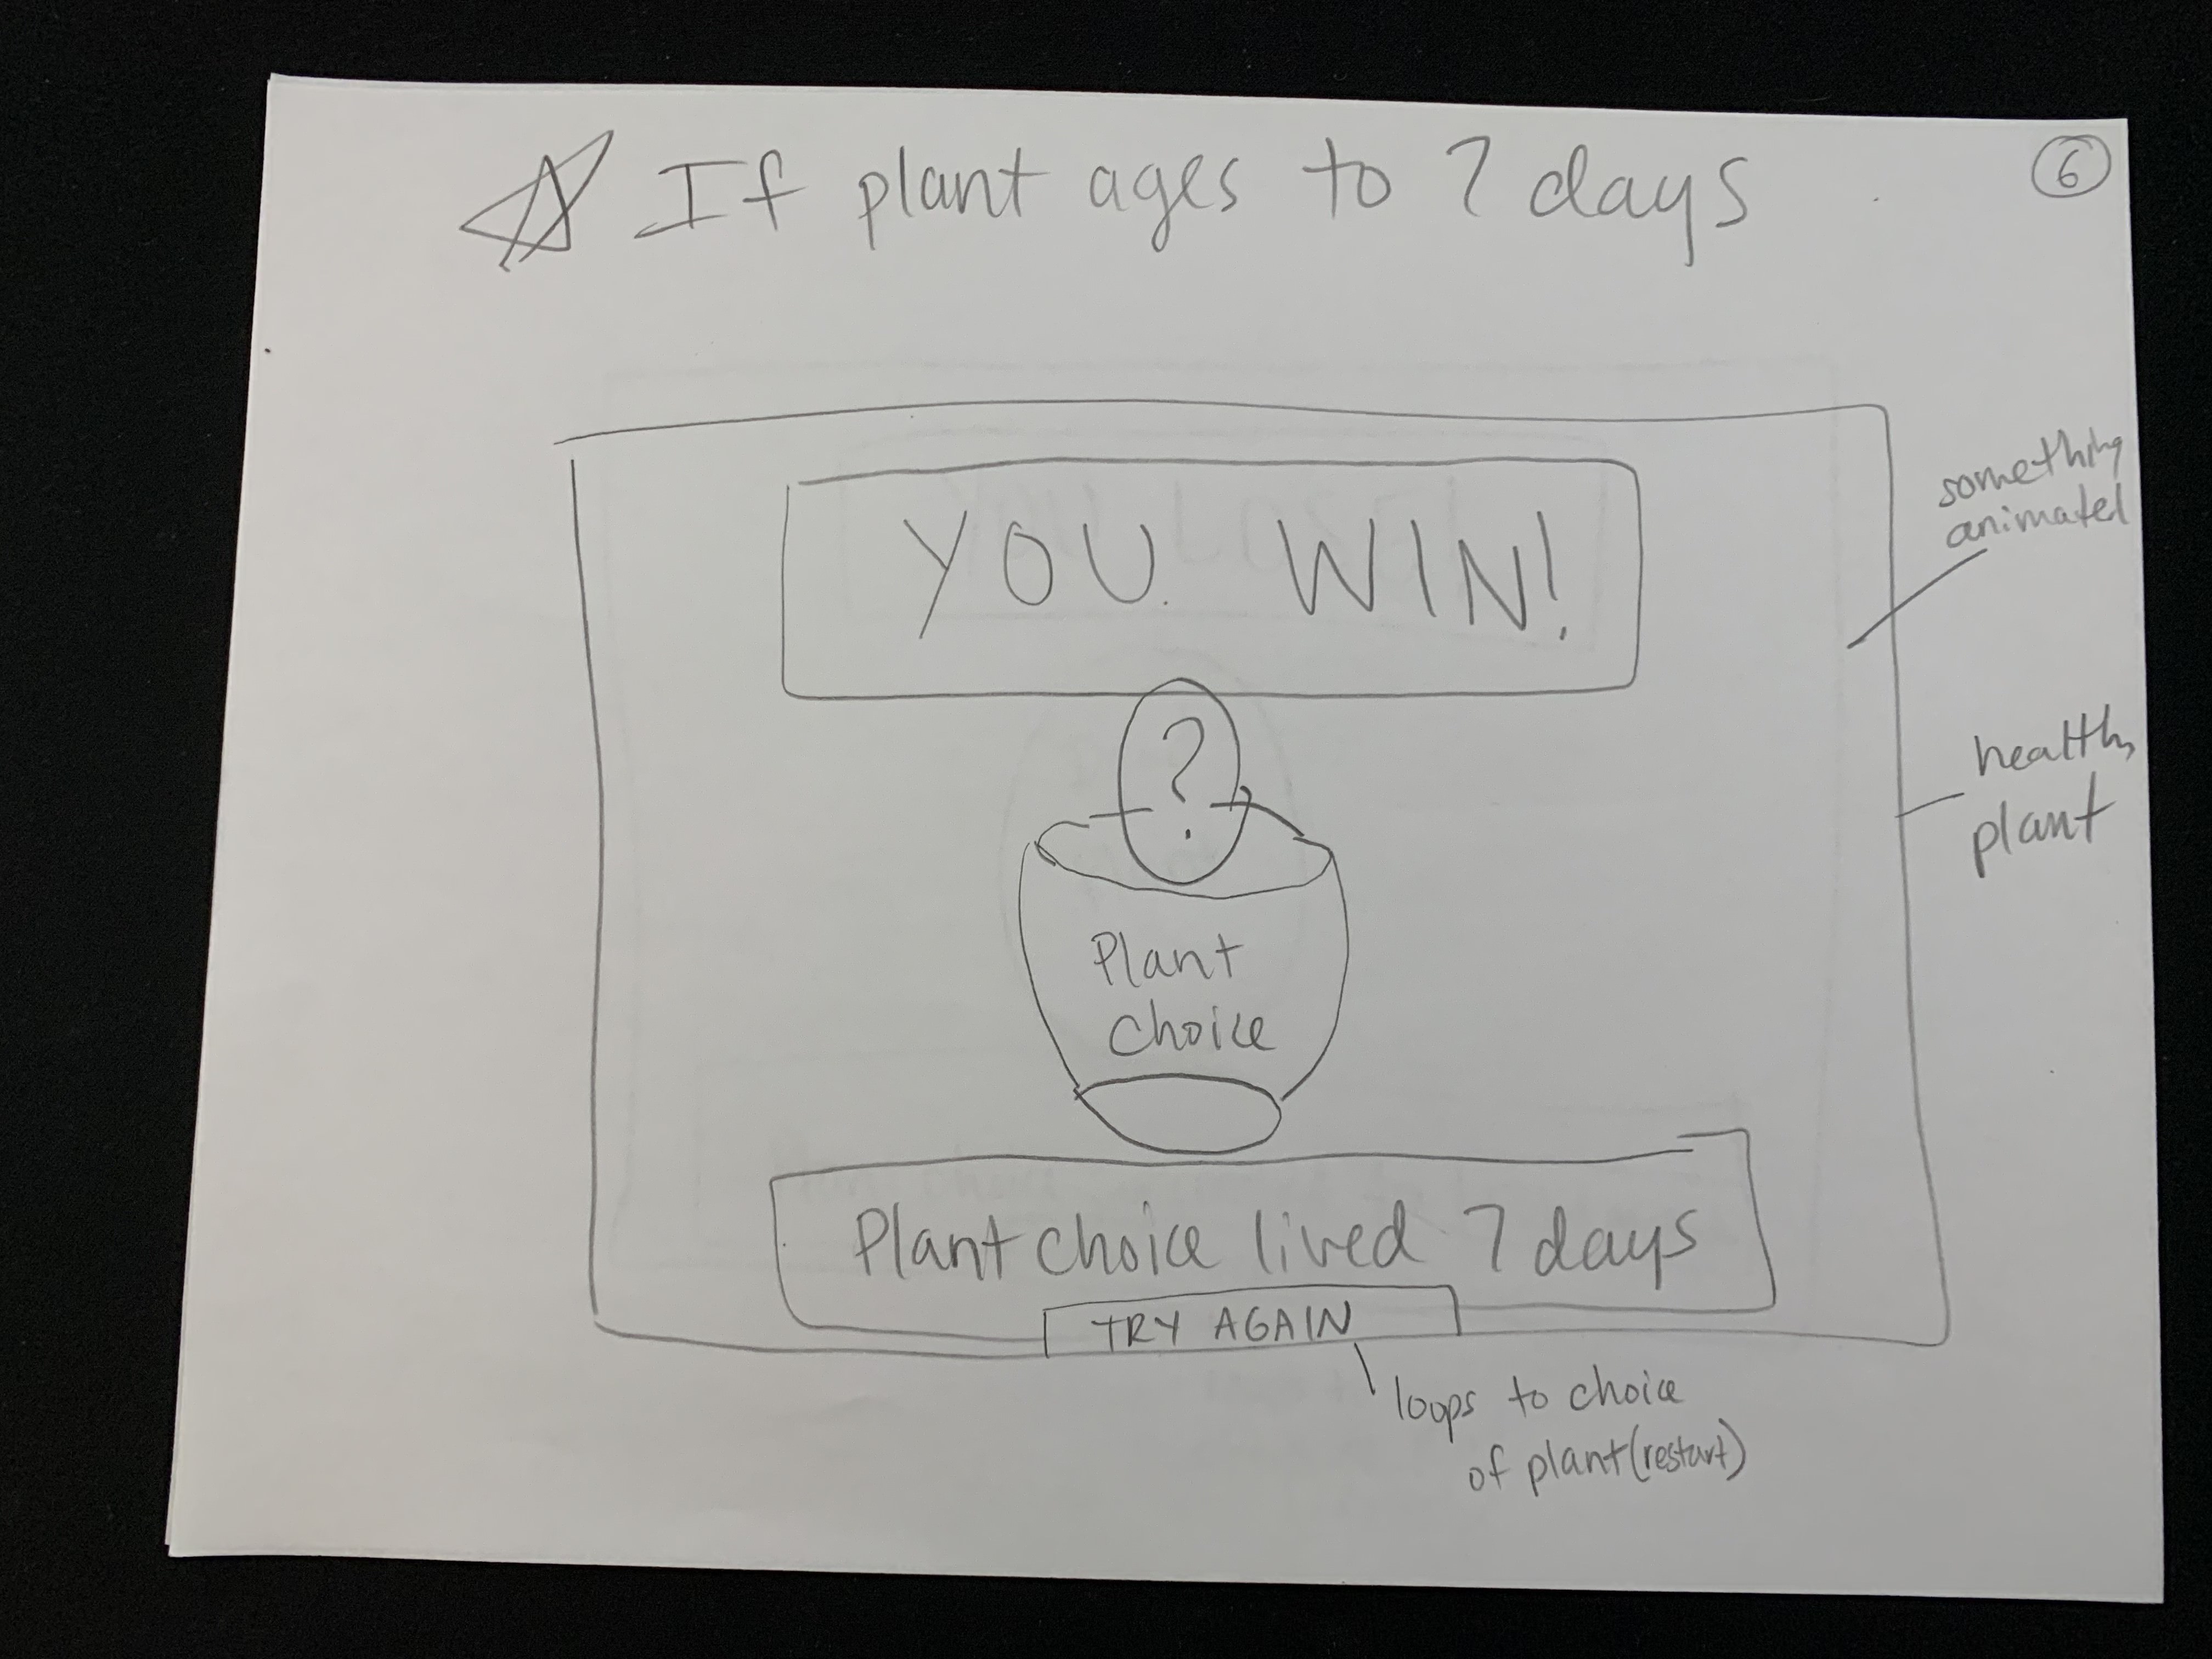 If plant ages to 7 days
6
something
animated
YOU WIN!
?
healthy
plant
Plant
Choice
Plant choice lived 7 days
TRY AGAIN
loops to choice
of plant (restart)